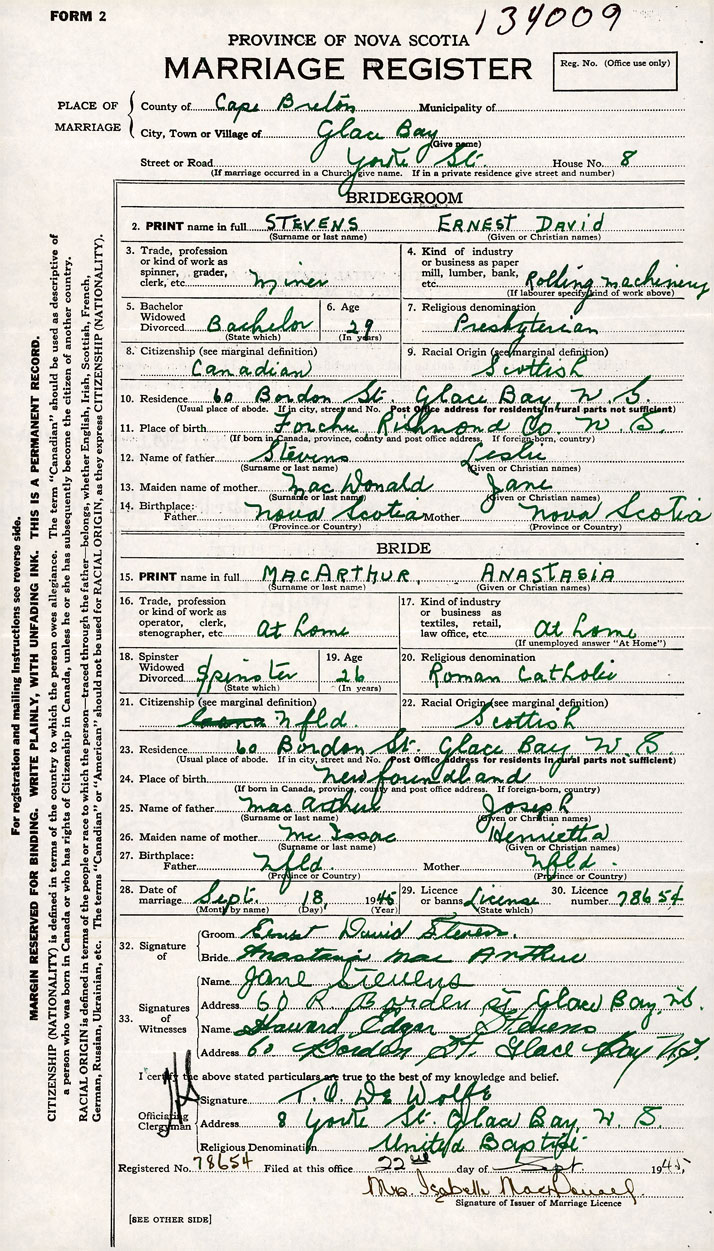 FORM 2
134009
PROVINCE OF NOVA SCOTIA
MARRIAGE REGISTER
Reg. No. (Office use only)
PLACE OF MARRIAGE
County of Cape Breton Municipality of
City, Town or Village of Glace Bay
(Give name)
Street or Road Yorke St. House No. 8
(If marriage occurred in a Church give name. If in a private residence give street and number)
BRIDEGROOM
2. PRINT name in full STEVENS ERNEST DAVID
(Surname or last name) (Given or Christian names)
3. Trade, profession or kind of work as spinner, grader, clerk, etc. Miner
4. Kind of industry or business as paper mill, lumber, bank, etc. Rolling machinery
(If labourer specify kind of work above)
5. Bachelor Widowed Divorced Bachelor
(State which)
6. Age 29
(In years)
7. Religious denomination Presbyterian
8. Citizenship (see marginal definition) Canadian
9. Racial Origin (see marginal definition) Scottish
10. Residence 60 Bordon St. Glace Bay, N. S.
(Usual place of abode. If in city, street and No. Post Office address for residents in rural parts not sufficient)
11. Place of birth Forchu Richmond Co. N. S.
(If born in Canada, province, county and post office address. If foreign-born, country)
12. Name of father Stevens Leslie
(Surname or last name) (Given or Christian names)
13. Maiden name of mother Mac Donald Jane
(Surname or last name) (Given or Christian names)
14. Birthplace: Father Nova Scotia Mother Nova Scotia
(Province or Country) (Province or Country)
BRIDE
15. PRINT name in full MACARTHUR, ANASTASIA
(Surname or last name) (Given or Christian names)
16. Trade, profession or kind of work as operator, clerk, stenographer, etc. At home
17. Kind of industry or business as textiles, retail, law office, etc. At home
(If unemployed answer "At Home")
18. Spinster Widowed Divorced Spinster
(State which)
19. Age 26
(In years)
20. Religious denomination Roman Catholic
21. Citizenship (see marginal definition) Nfld.
22. Racial Origin (see marginal definition) Scottish
23. Residence 60 Bordon St. Glace Bay N. S.
(Usual place of abode. If in city, street and No. Post Office address for residents in rural parts not sufficient)
24. Place of birth Newfoundland
(If born in Canada, province, county and post office address. If foreign-born, country)
25. Name of father Mac Arthur Joseph
(Surname or last name) (Given or Christian names)
26. Maiden name of mother Mc Issac Henrietta
(Surname or last name) (Given or Christian names)
27. Birthplace: Father Nfld. Mother Nfld.
(Province or Country) (Province or Country)
28. Date of marriage Sept. 18, 1945
(Month by name) (Day) (Year)
29. Licence or banns License
(State which)
30. Licence number 78654
32. Signature of
Groom Ernest David Stevens.
Bride Anastasia Mac Arthur
33. Signatures of Witnesses
Name Jane Stevens
Address 60 R Borden st Glace Bay, N.S.
Name Howard Edgar Stevens
Address 60 Bordon St. Glace Bay N.S.
I certify the above stated particulars are true to the best of my knowledge and belief.
Officiating Clergyman
Signature T. O. De Wolfe
Address 8 Yorke St. Glace Bay, N. S.
Religious Denomination United Baptist
Registered No. 78654 Filed at this office 22nd day of Sept 1945,
Mrs. Isabelle
Signature of Issuer of Marriage Licence
[SEE OTHER SIDE]
For registration and mailing instructions see reverse side.
MARGIN RESERVED FOR BINDING. WRITE PLAINLY, WITH UNFADING INK. THIS IS A PERMANENT RECORD.
CITIZENSHIP (NATIONALITY) is defined in terms of the country to which the person owes allegiance. The term "Canadian" should be used as descriptive of
a person who was born in Canada or who has rights of Citizenship in Canada, unless he or she has subsequently become the citizen of another country.
RACIAL ORIGIN is defined in terms of the people or race to which the person—traced through the father—belongs, whether English, Irish, Scottish, French,
German, Russian, Ukrainian, etc. The terms "Canadian" or "American" should not be used for RACIAL ORIGIN, as they express CITIZENSHIP (NATIONALITY).